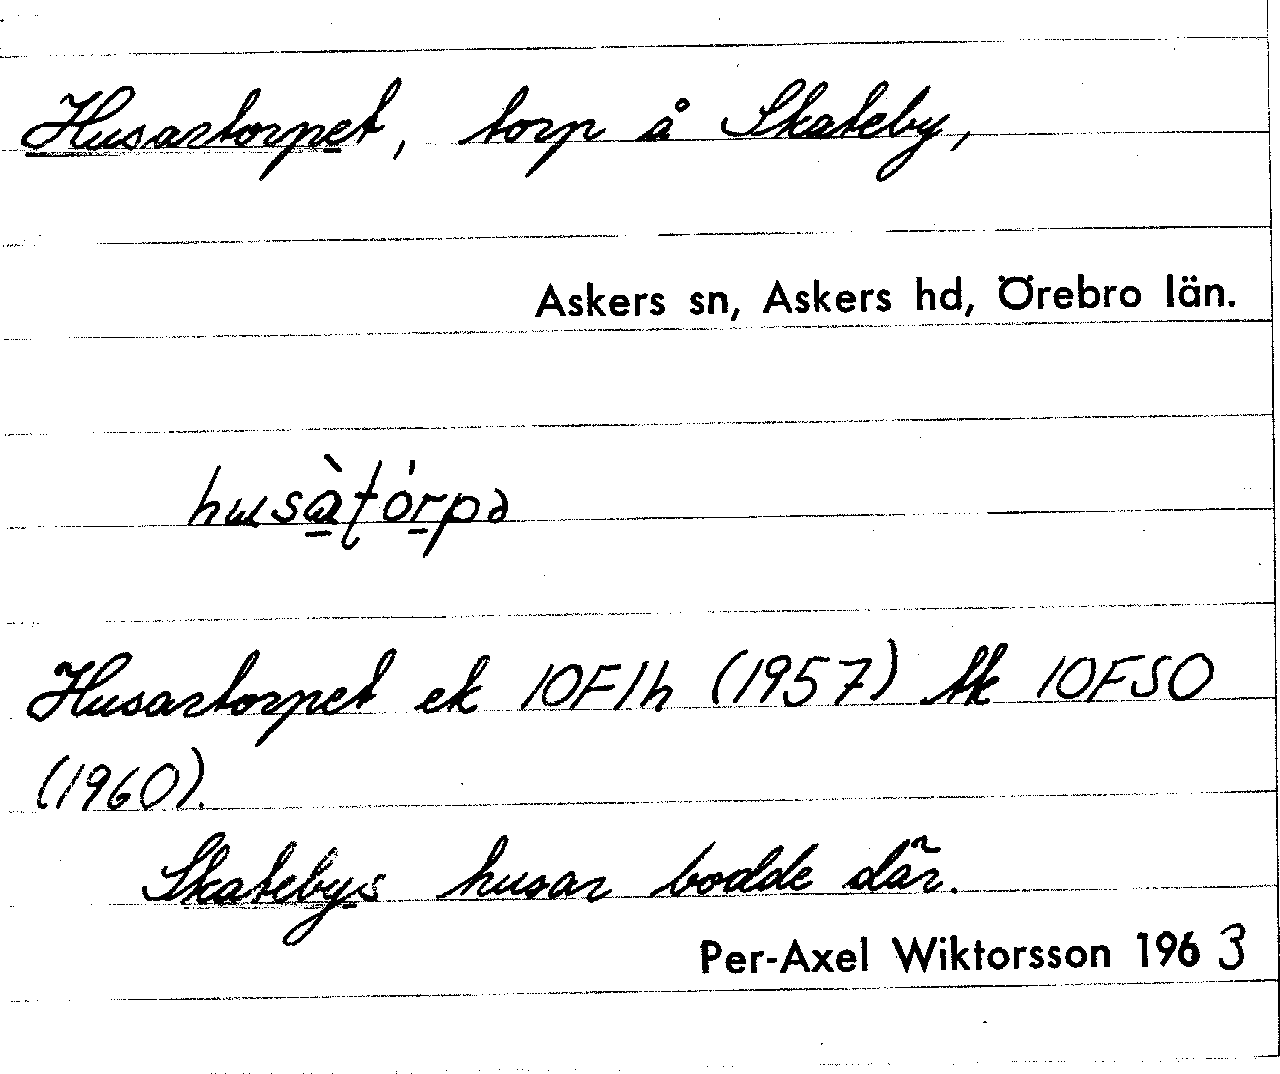 Husartorpet, torp å Skateby,
Askers sn, Askers hd, Örebro län.
husàtórpə
Husartorpet ek 10F1h (1957) tk 10FSO
(1960).
Skatebys husar bodde där.
Per-Axel Wiktorsson 1963